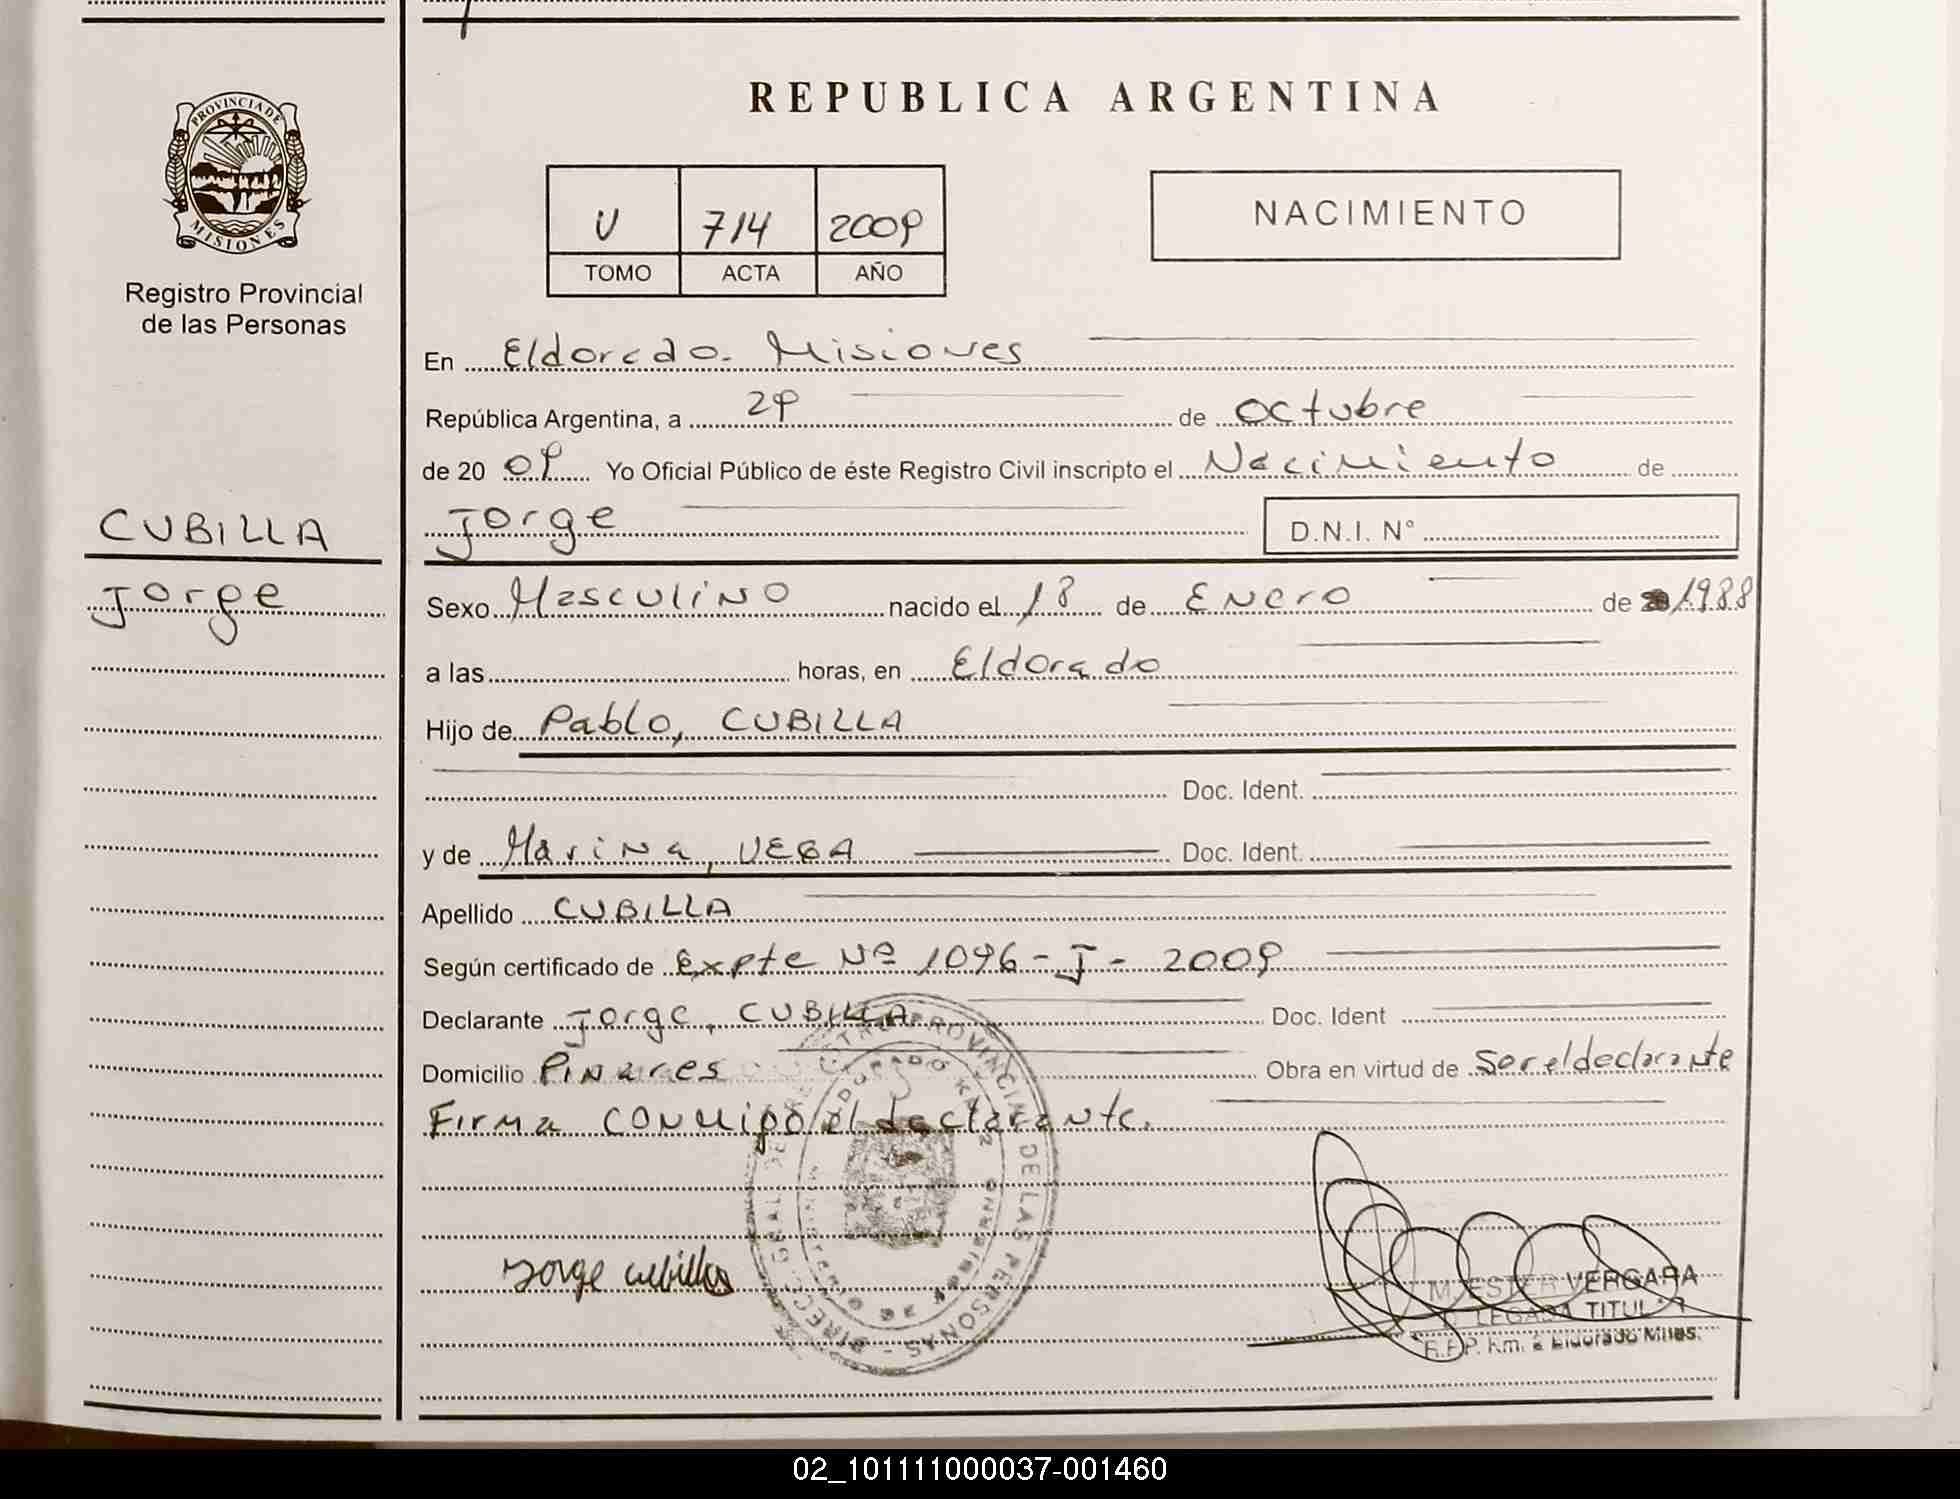 REPUBLICA ARGENTINA
PROVINCIA DE MISIONES
Registro Provincial
de las Personas
U 714 2009
TOMO ACTA AÑO
NACIMIENTO
En Eldorado - Misiones
República Argentina, a 29 de octubre
de 20 09 Yo Oficial Público de éste Registro Civil inscripto el Nacimiento de
CUBILLA
Jorge D.N.I. N°
Jorge
Sexo Masculino nacido el 18 de Enero de 1988
a las horas, en Eldorado
Hijo de Pablo, CUBILLA
Doc. Ident.
y de Marina, VEGA Doc. Ident.
Apellido CUBILLA
Según certificado de Expte Nº 1096 - J - 2009
Declarante Jorge, CUBILLA Doc. Ident
Domicilio Pinares Obra en virtud de Ser el declarante
Firma conmigo el declarante.
PROVINCIAL DE LAS PERSONAS
Jorge cubilla
M. ESTER VERGARA
R.P.P. Km. Eldorado Mnes.
02_101111000037-001460